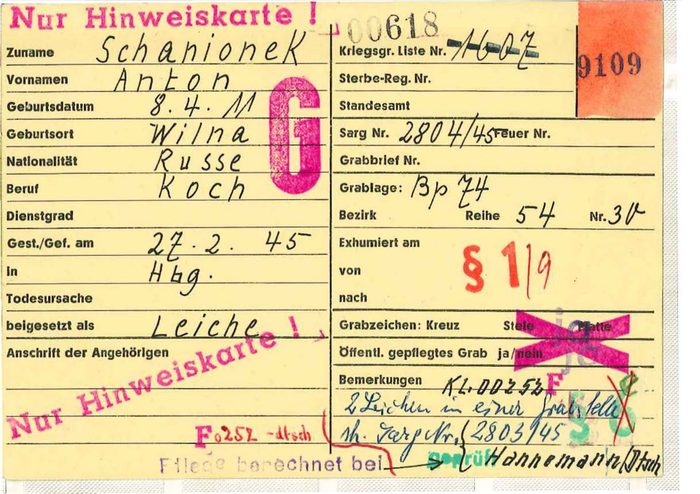 Nur Hinweiskarte !
Zuname Schanionek
Vornamen Anton
Geburtsdatum 8. 4. 11
Geburtsort Wilna
Nationalität Russe
Beruf Koch
Dienstgrad
Gest./Gef. am 27. 2. 45
in Hbg.
Todesursache
beigesetzt als Leiche
Anschrift der Angehörigen
Nur Hinweiskarte !
F0252 -dtsch
G
00618
Kriegsgr. Liste Nr. 1607
9109
Sterbe-Reg. Nr.
Standesamt
Sarg Nr. 2804/45 Feuer Nr.
Grabbrief Nr.
Grablage: Bp 74
Bezirk Reihe 54 Nr. 30
Exhumiert am
von
nach
§ 1/9
Grabzeichen: Kreuz Stele Platte
Öffentl. gepflegtes Grab ja/nein
ja
Bemerkungen KL.00252 F
2 Leichen in einer Grabstelle
sh. Sarg Nr. 2803/45
Pflege berechnet bei geprüft Hannemann/Dtsch